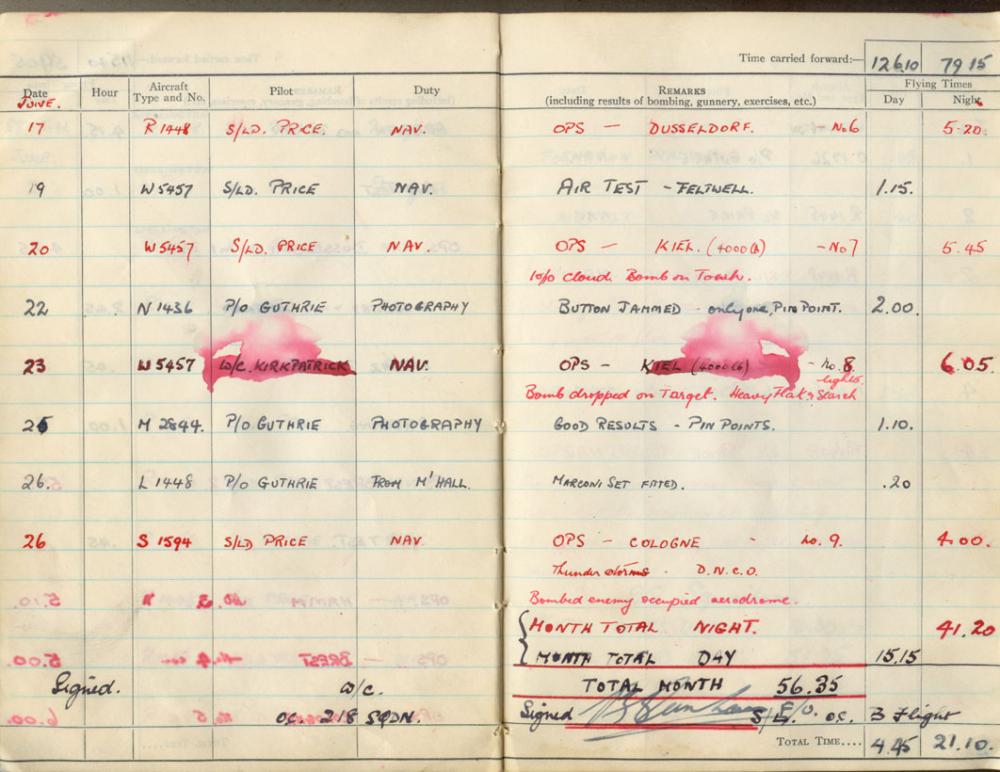 Time carried forward:— 126.10 79 15
Date Hour Aircraft Type and No. Pilot Duty REMARKS (including results of bombing, gunnery, exercises, etc.) Flying Times Day Night
JUNE.
17 R 1448 S/LD. PRICE. NAV. OPS — DUSSELDORF. No6 5.20.
19 W5457 S/LD. PRICE NAV. AIR TEST - FELTWELL. 1.15.
20 W5457 S/LD. PRICE NAV. OPS — KIEL. (4000 lb) - No7 5.45
10/10 Cloud. Bomb on Torch.
22 N 1436 P/O GUTHRIE PHOTOGRAPHY BUTTON JAMMED - only one, PIN POINT. 2.00.
23 W5457 W/C. KIRKPATRICK NAV. OPS — KIEL (4000 lb) - no. 8. 6.05.
Bomb dropped on Target. Heavy Flak & Search lights
25 M 2844. P/O GUTHRIE PHOTOGRAPHY GOOD RESULTS - PIN POINTS. 1.10.
26. L 1448 P/O GUTHRIE FROM M'HALL. MARCONI SET FITED. .20
26 S 1594 S/LD PRICE NAV. OPS — COLOGNE - no. 9. 4.00.
Thunder storms. D.N.C.O.
Bombed enemy occupied aerodrome.
MONTH TOTAL NIGHT. 41.20
MONTH TOTAL DAY 15.15
TOTAL MONTH 56.35
Signed. W/C.
O.C. 218 SQDN.
Signed S/L. oc. B Flight
TOTAL TIME.... 4.45 21.10.